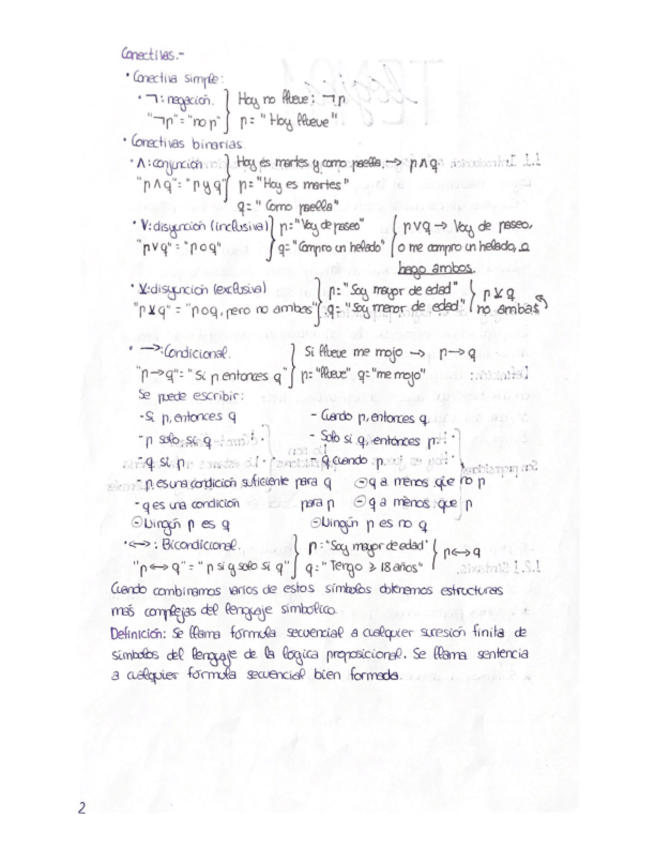 Conectivas.-
• Conectiva simple:
• ¬: negación. } Hoy no llueve: ¬p
"¬p" = "no p" } p = "Hoy llueve"
• Conectivas binarias
• ∧: conjunción } Hoy es martes y como paella → p∧q
"p∧q" = "p y q" } p = "Hoy es martes"
q = "Como paella"
• V: disyunción (inclusiva) } p = "Voy de paseo" { p∨q → Voy de paseo,
"p∨q" = "p o q" } q = "Compro un helado" { o me compro un helado, o
hago ambos.
• ⊻: disyunción (exclusiva) } p = "Soy mayor de edad" } p⊻q
"p⊻q" = "p o q, pero no ambos" } q = "Soy menor de edad" } no ambas
• →: Condicional. } Si llueve me mojo → p→q
"p→q" = "Si p entonces q" } p = "llueve" q = "me mojo"
Se puede escribir:
- Si p, entonces q - Cuando p, entonces q
- p solo si q - Solo si q, entonces p
- q si p - q cuando p
- p es una condición suficiente para q ⊖ q a menos que no p
- q es una condición para p ⊖ q a menos que p
⊖ Ningún p es q ⊖ Ningún p es no q
• ↔: Bicondicional. } p = "Soy mayor de edad" } p↔q
"p↔q" = "p si y solo si q" } q = "Tengo ≥ 18 años"
Cuando combinamos varios de estos símbolos obtenemos estructuras
más complejas del lenguaje simbólico.
Definición: Se llama fórmula secuencial a cualquier sucesión finita de
símbolos del lenguaje de la lógica proposicional. Se llama sentencia
a cualquier fórmula secuencial bien formada.
2